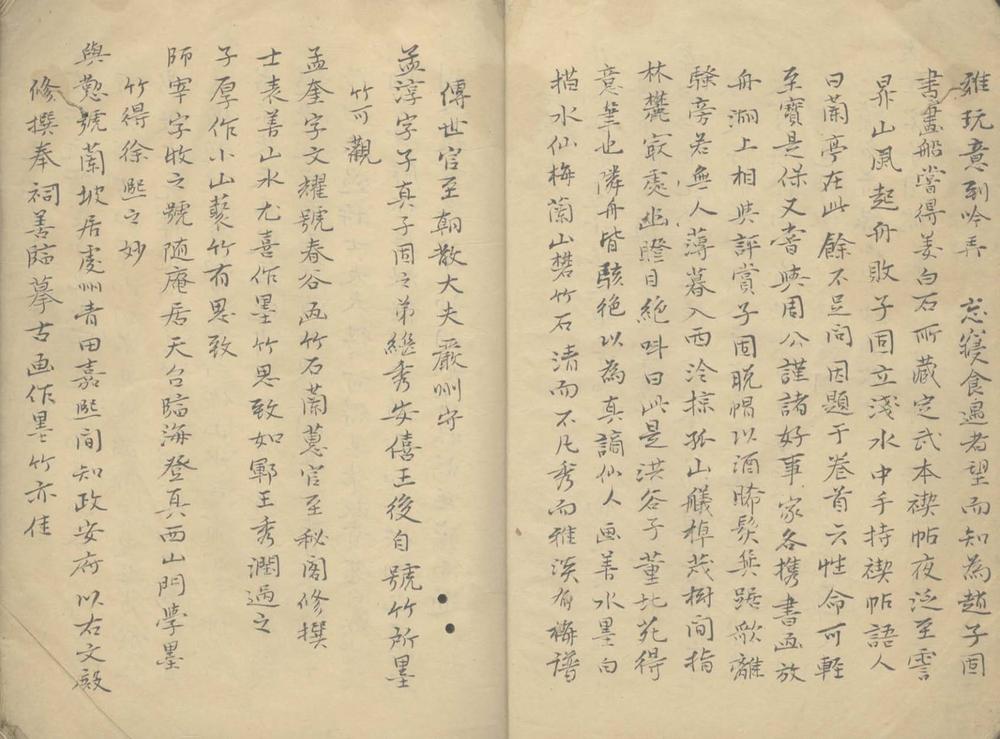 雅玩意到吟弄　忘寢食遇者望而知為趙子固
書畫船嘗得姜白石所藏定武本禊帖夜泛至霅
昇山風起舟敗子固立淺水中手持禊帖語人
曰蘭亭在此餘不足問因題于卷首云性命可輕
至寶是保又嘗與周公謹諸好事家各携書画放
舟湖上相與評賞子固脫帽以酒晞髮箕踞歌離
騷旁若無人薄暮入西泠掠孤山艤棹茂樹間指
林麓㝡處幽瞪目絕叫曰此是洪谷子董北苑得
意筆也隣舟皆駭絶以為真謫仙人画善水墨白
描水仙梅蘭山礬竹石清而不凡秀而雅淡有梅譜
傳世官至朝散大夫嚴州守
孟淳字子真子固之弟繼秀安僖王後自號竹所墨
竹可觀
孟奎字文耀號春谷画竹石蘭蕙官至秘閣修撰
士表善山水尤喜作墨竹思致如鄆王秀潤過之
子厚作小山叢竹有思致
師宰字牧之號随庵居天台臨海登真西山門學墨
竹得徐熙之妙
與懃號蘭坡居處州青田嘉熙間知政安府以右文殿
修撰奉祠善臨摹古画作墨竹亦佳